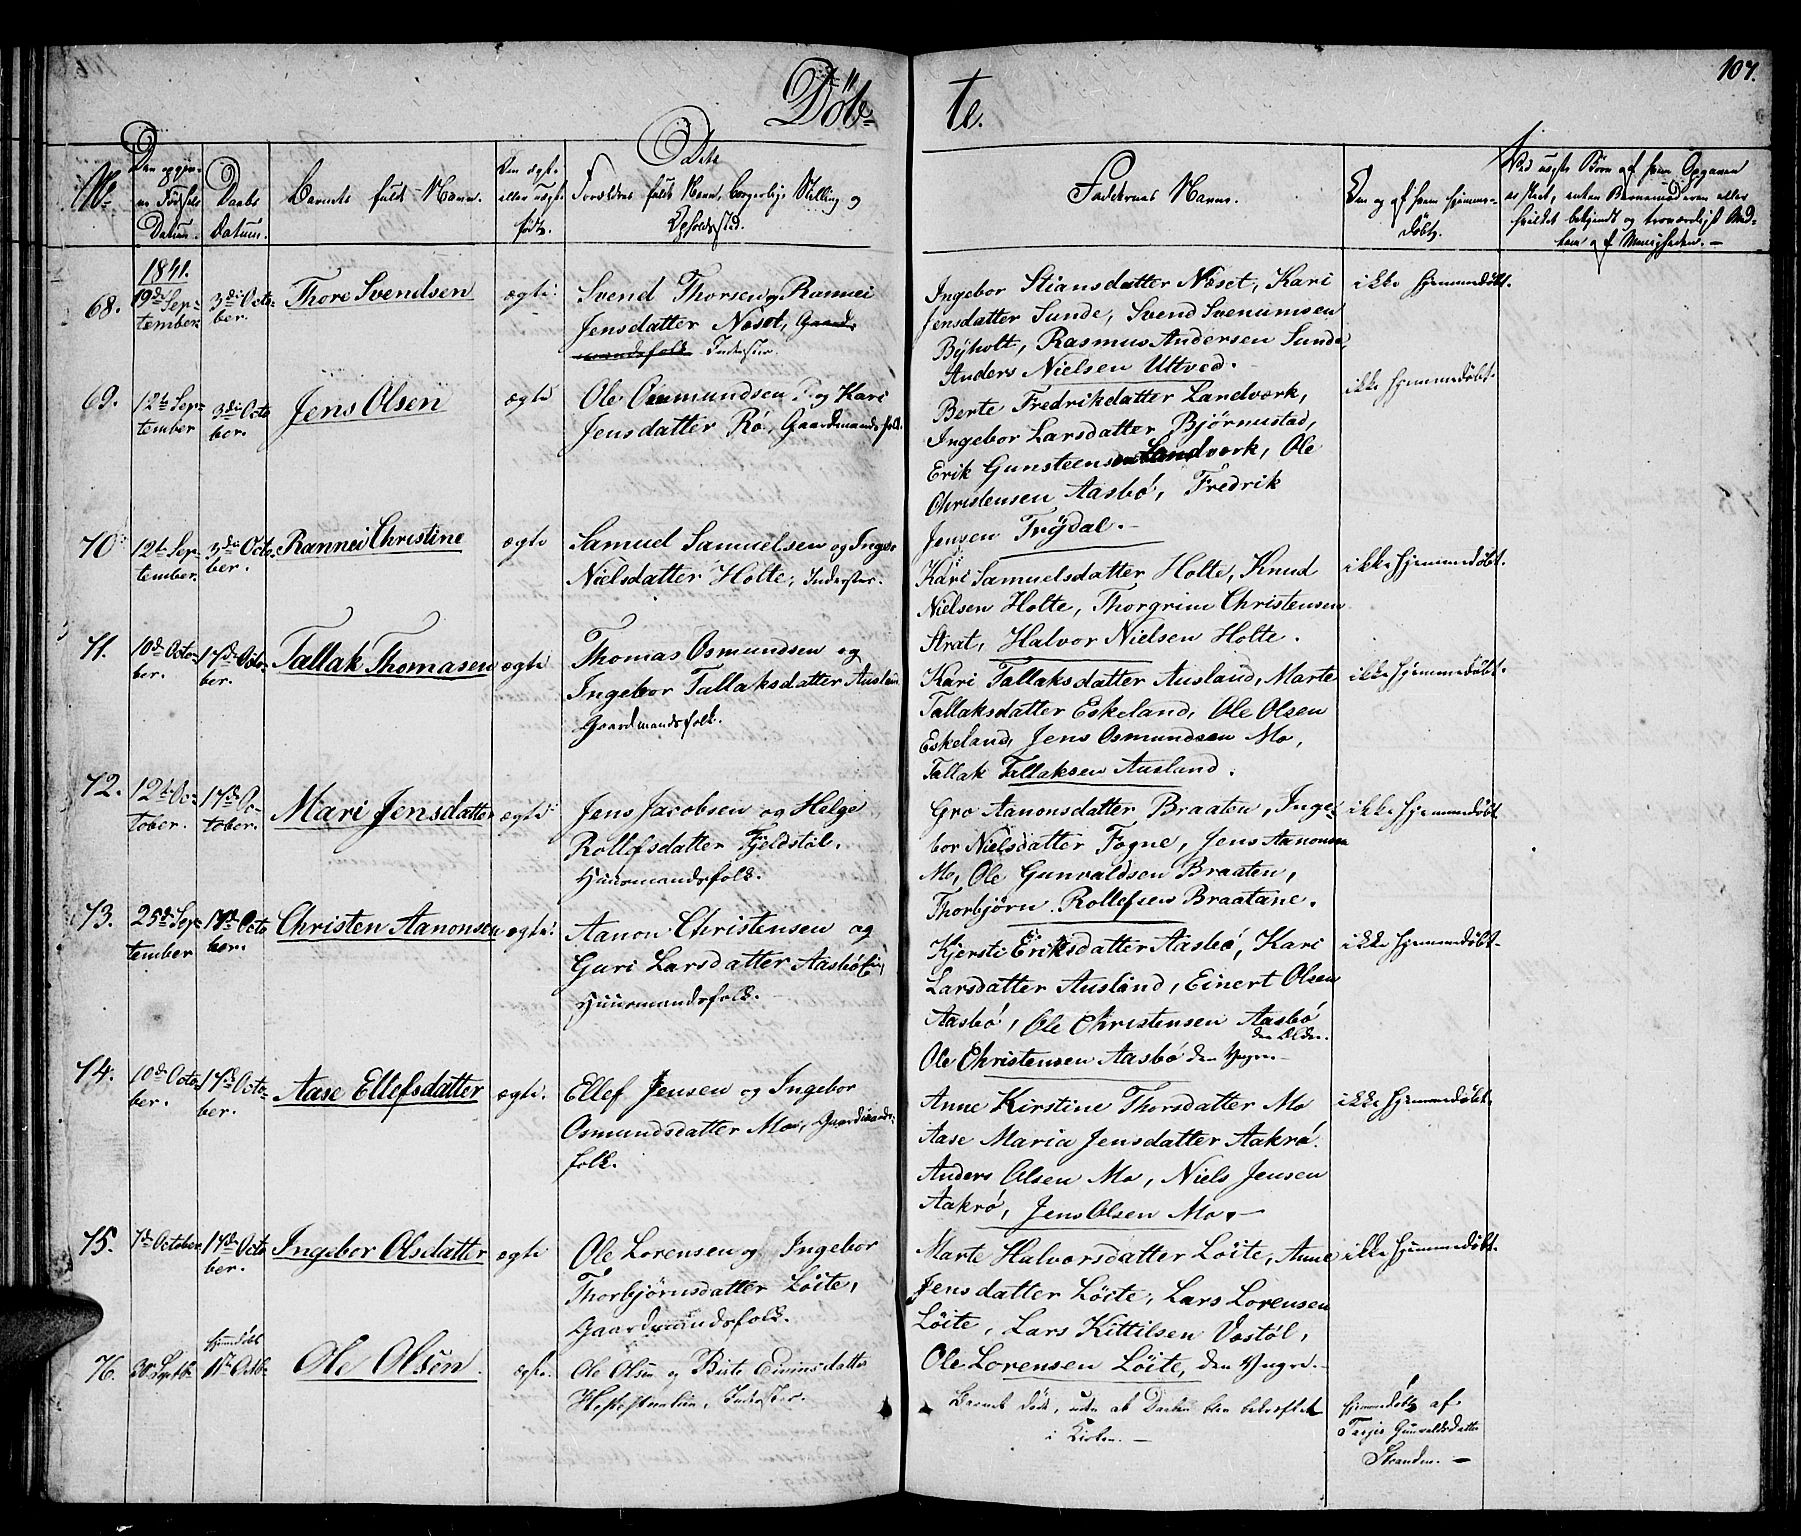 107.
Døb-
te.
No
Den opgivne Fødsels Datum.
Daabs Datum.
Barnets fulde Navn.
Om ægte eller uægte født.
Dets
Forældres fulde Navn, borgerlige Stilling og
Opholdssted.
Faddernes Navne.
Om og af hvem hjemme-
døbt.
1841.
68.
19de Sep-
tember.
3die Octo-
ber.
Thore Svendsen
ægte
Svend Thorsen og Rannei
Jensdatter Nöset, Gaard-
mandsfolk Inderster.
Ingebor Stiansdatter Nöset, Kari
Jensdatter Sunde, Svend Svenumsen
Byholt, Rasmus Andersen Sunde
Anders Nielsen Uttved.
ikke hjemmedøbt.
69.
12te Sep-
tember
3die Octo
ber.
Jens Olsen
ægte
Ole Osmundsen og Kari
Jensdatter Rö, Gaardmandsfolk.
Berte Fredrikdatter Landværk,
Ingebor Larsdatter Björnustad,
Erik Gunsteensen Landværk, Ole
Christensen Aasbö, Fredrik
Jensen Tröjdal.
ikke hjemmedøbt.
70
12te Sep-
tember.
3die Octo
ber.
Rannei Christine
ægte
Samuel Samuelsen og Inge-
Nielsdatter Holte, Inderster.
Kari Samuelsdatter Holte, Knud
Nielsen Holte, Thorgrim Christensen
Strat, Halvor Nielsen Holte.
ikke hjemmedøbt.
71.
10de Octo-
ber.
17de Octo-
ber.
Tallak Thomasen
ægte
Thomas Osmundsen og
Ingebor Tallaksdatter Ausland
Gaardmandsfolk.
Kari Tallaksdatter Ausland, Marte
Tallaksdatter Eskeland, Ole Olsen
Eskeland, Jens Osmundsen Mo,
Tallak Tallaksen Ausland.
ikke hjemmedøbt.
72.
12te Oc-
tober.
17de Oc-
tober.
Mari Jensdatter
ægte
Jens Jacobsen og Helge
Rollefsdatter Fjeldstöl.
Huusmandsfolk.
Gro Aanonsdatter Braaten, Inge-
bor Nielsdatter Fogne, Jens Aanonsen
Mo, Ole Gunvaldsen Braaten,
Thorbjörn Rollefsen Braatane.
ikke hjemmedøbt
73.
25de Sep-
tember
17de Octo
ber.
Christen Aanonsen
ægte
Aanon Christensen og
Guri Larsdatter Aasbö
Huusmandsfolk.
Kjersti Eriksdatter Aasbö, Kari
Larsdatter Ausland, Einert Olsen
Aasbö, Ole Christensen Aasbö
den Ældre.
Ole Christensen Aasbö den Yngre.
ikke hjemmedøbt
74.
10de Octo-
ber.
17de Octo-
ber.
Aase Ellefsdatter
ægte.
Ellef Jensen og Ingebor
Osmundsdatter Mo, Gaardmands-
folk.
Anne Kirstine Thorsdatter Mo
Aase Maria Jensdatter Aakrö.
Anders Olsen Mo, Niels Jensen
Aakrö, Jens Olsen Mo.
ikke hjemmedøbt.
75.
7de October.
17de Octo
ber.
Ingebor Olsdatter
ægte
Ole Lorensen og Ingebor
Thorbjörnsdatter Löite,
Gaardmandsfolk.
Marte Halvorsdatter Löite, Anne
Jensdatter Löite, Lars Lorensen
Löite, Lars Kittilsen Vostöl,
Ole Lorensen Löite, den Yngre.
ikke hjemmedøbt.
76.
30 Septbr.
hjemmedøbt
1ste Octbr.
Ole Olsen
ægte.
Ole Olsen og Birte Eivinsdatter
Inderster.
Barnet døde, uden at Daaben blev bekræftet
i Kirken.
hjemmedøbt af
Tarjer Gunvaldsdatter
Stranden.